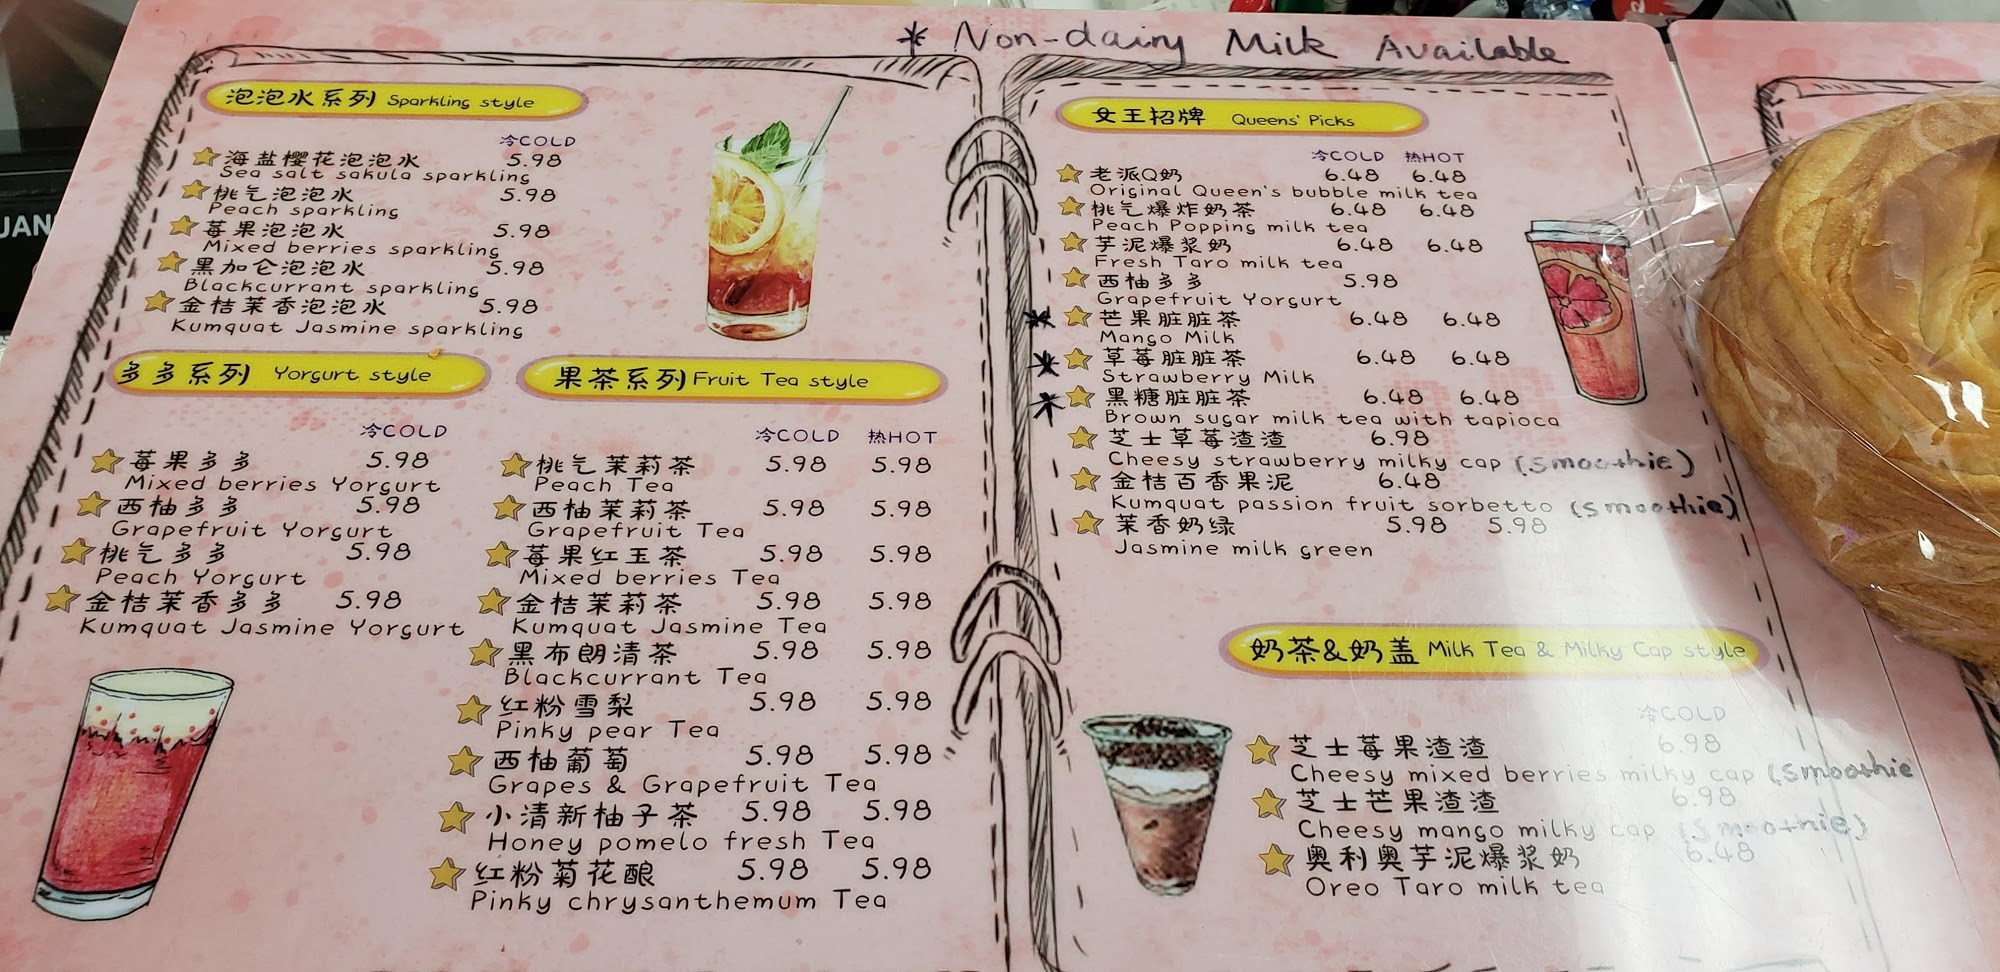 * Non-dairy Milk Available
泡泡水系列 Sparkling style
冷COLD
海盐樱花泡泡水 5.98
Sea salt sakula sparkling
桃气泡泡水 5.98
Peach sparkling
莓果泡泡水 5.98
Mixed berries sparkling
黑加仑泡泡水 5.98
Blackcurrant sparkling
金桔茉香泡泡水 5.98
Kumquat Jasmine sparkling
多多系列 Yorgurt style
冷COLD
莓果多多 5.98
Mixed berries Yorgurt
西柚多多 5.98
Grapefruit Yorgurt
桃气多多 5.98
Peach Yorgurt
金桔茉香多多 5.98
Kumquat Jasmine Yorgurt
果茶系列 Fruit Tea style
冷COLD 热HOT
桃气茉莉茶 5.98 5.98
Peach Tea
西柚茉莉茶 5.98 5.98
Grapefruit Tea
莓果红玉茶 5.98 5.98
Mixed berries Tea
金桔茉莉茶 5.98 5.98
Kumquat Jasmine Tea
黑布朗清茶 5.98 5.98
Blackcurrant Tea
红粉雪梨 5.98 5.98
Pinky pear Tea
西柚葡萄 5.98 5.98
Grapes & Grapefruit Tea
小清新柚子茶 5.98 5.98
Honey pomelo fresh Tea
红粉菊花酿 5.98 5.98
Pinky chrysanthemum Tea
女王招牌 Queens' Picks
冷COLD 热HOT
老派Q奶 6.48 6.48
Original Queen's bubble milk tea
桃气爆炸奶茶 6.48 6.48
Peach Popping milk tea
芋泥爆浆奶 6.48 6.48
Fresh Taro milk tea
西柚多多 5.98
Grapefruit Yorgurt
* 芒果脏脏茶 6.48 6.48
Mango Milk
* 草莓脏脏茶 6.48 6.48
Strawberry Milk
* 黑糖脏脏茶 6.48 6.48
Brown sugar milk tea with tapioca
芝士草莓渣渣 6.98
Cheesy strawberry milky cap (smoothie)
金桔百香果泥 6.48
Kumquat passion fruit sorbetto (smoothie)
茉香奶绿 5.98 5.98
Jasmine milk green
奶茶&奶盖 Milk Tea & Milky Cap style
冷COLD
芝士莓果渣渣 6.98
Cheesy mixed berries milky cap (smoothie
芝士芒果渣渣 6.98
Cheesy mango milky cap (smoothie)
奥利奥芋泥爆浆奶 6.48
Oreo Taro milk tea